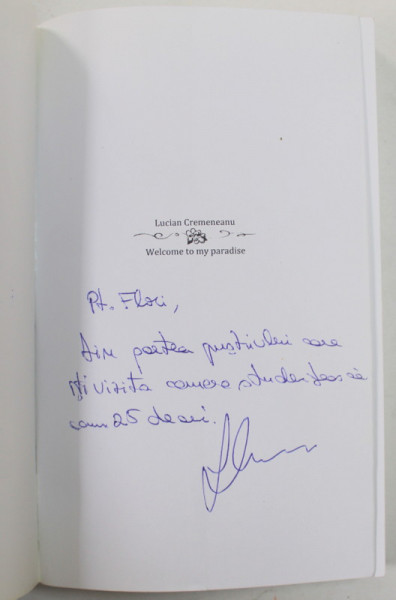 Lucian Cremeneanu
Welcome to my paradise
Pt. Flori,
Din partea puștiului care
îți vizita camera studențească
cam 25 de ori.